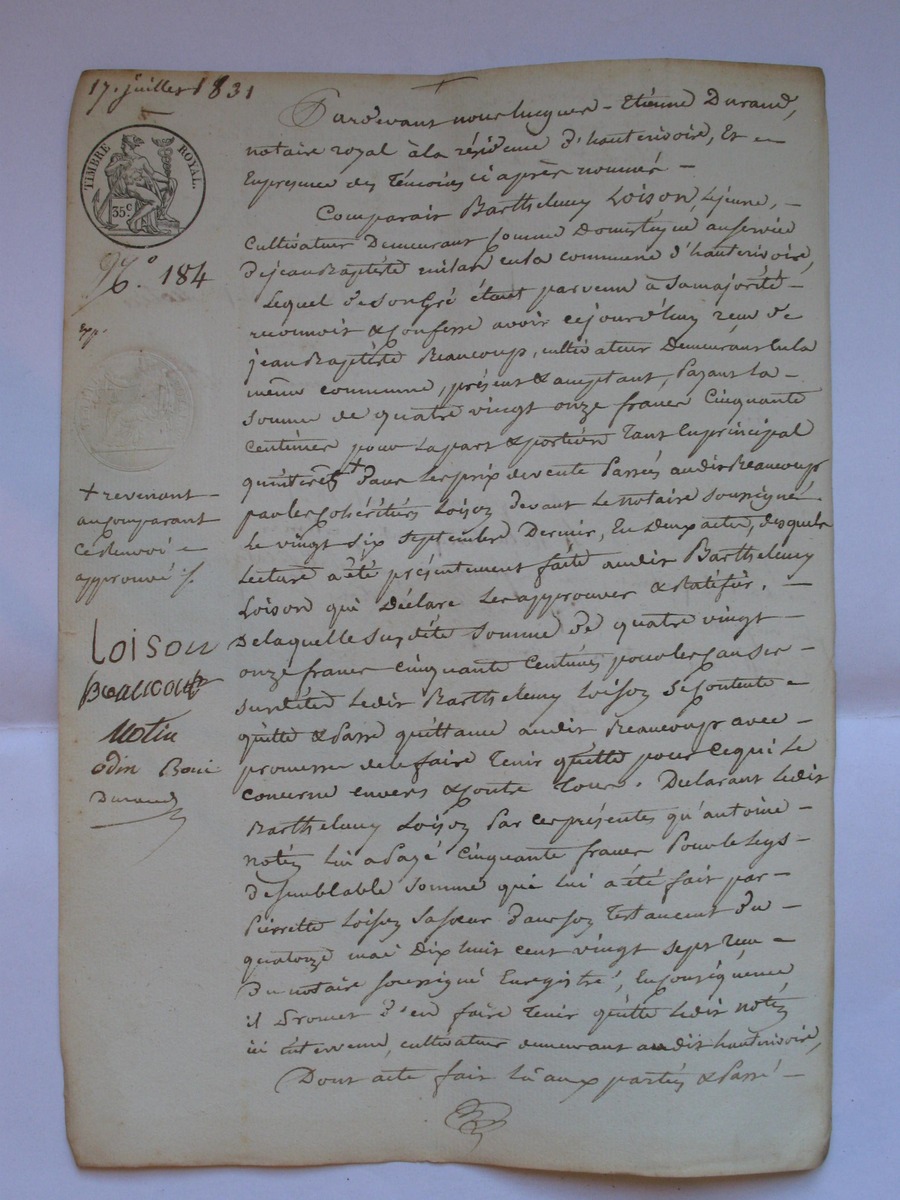 17. juillet 1831
TIMBRE ROYAL.
35c
No. 184
+ revenant
au comparant
ce Renvoi
approuvé
Loison
Beaucoup
Notin
odin Boni
Durand
Pardevant nous Jacques - Etienne Durand,
notaire royal à la résidence d'hauterivoire, Et en
Enpresence des Témoins ci après nommés -
Comparait Barthelemy Loison, Lejeune, -
Cultivateur Demeurant comme Domestique auservice
DejeanBaptiste milan enla commune d'hauterivoire,
Lequel de SonGré étant parvenu à Samajorité -
reconnoit & Confesse avoir cejourd'huy reçu de
jeanBaptiste Beaucoup, cultivateur Demeurant Enla
même commune, présent & acceptant, Payant La -
Somme de quatre vingt onze francs Cinquante
Centimes pour Lapart & portion Tant Enprincipal
qu'intérêts + Dans Lesprix devente Passés audit Beaucoup
parlesCohéritiers Loison devant Lenotaire Soussigné
Le vingt Six Septembre Dernier, En Deux actes, desquels
Lecture a été présentement faite audit Barthelemy
Loison qui Déclare Les approuver & Ratifier. -
Delaquelle Susdite Somme de quatre vingt -
onze francs cinquante Centimes pour les Causes -
Susdites Ledit Barthelemy Loison Se Contente
quitte & Passe quittance audit Beaucoup avec -
promesse de le faire Tenir quitte pour Cequi Le
Concerne envers & Contre Tous. Déclarant Ledit
Barthelemy Loison Par ces présentes qu'antoine -
notin Lui a Payé Cinquante francs Pour le Legs -
deSemblable Somme qui Lui a été fait par -
Pierrette Loison SaSœur Dans Son Testament Du -
quatorze mai Dix huit cent vingt Sept reçu -
Du notaire Soussigné Enregistré, En Conséquence
il Promet D'en faire Tenir quitte Ledit notin
ici intervenu, cultivateur demeurant audit hauterivoire,
Dont acte fait Lu aux parties & Passé -